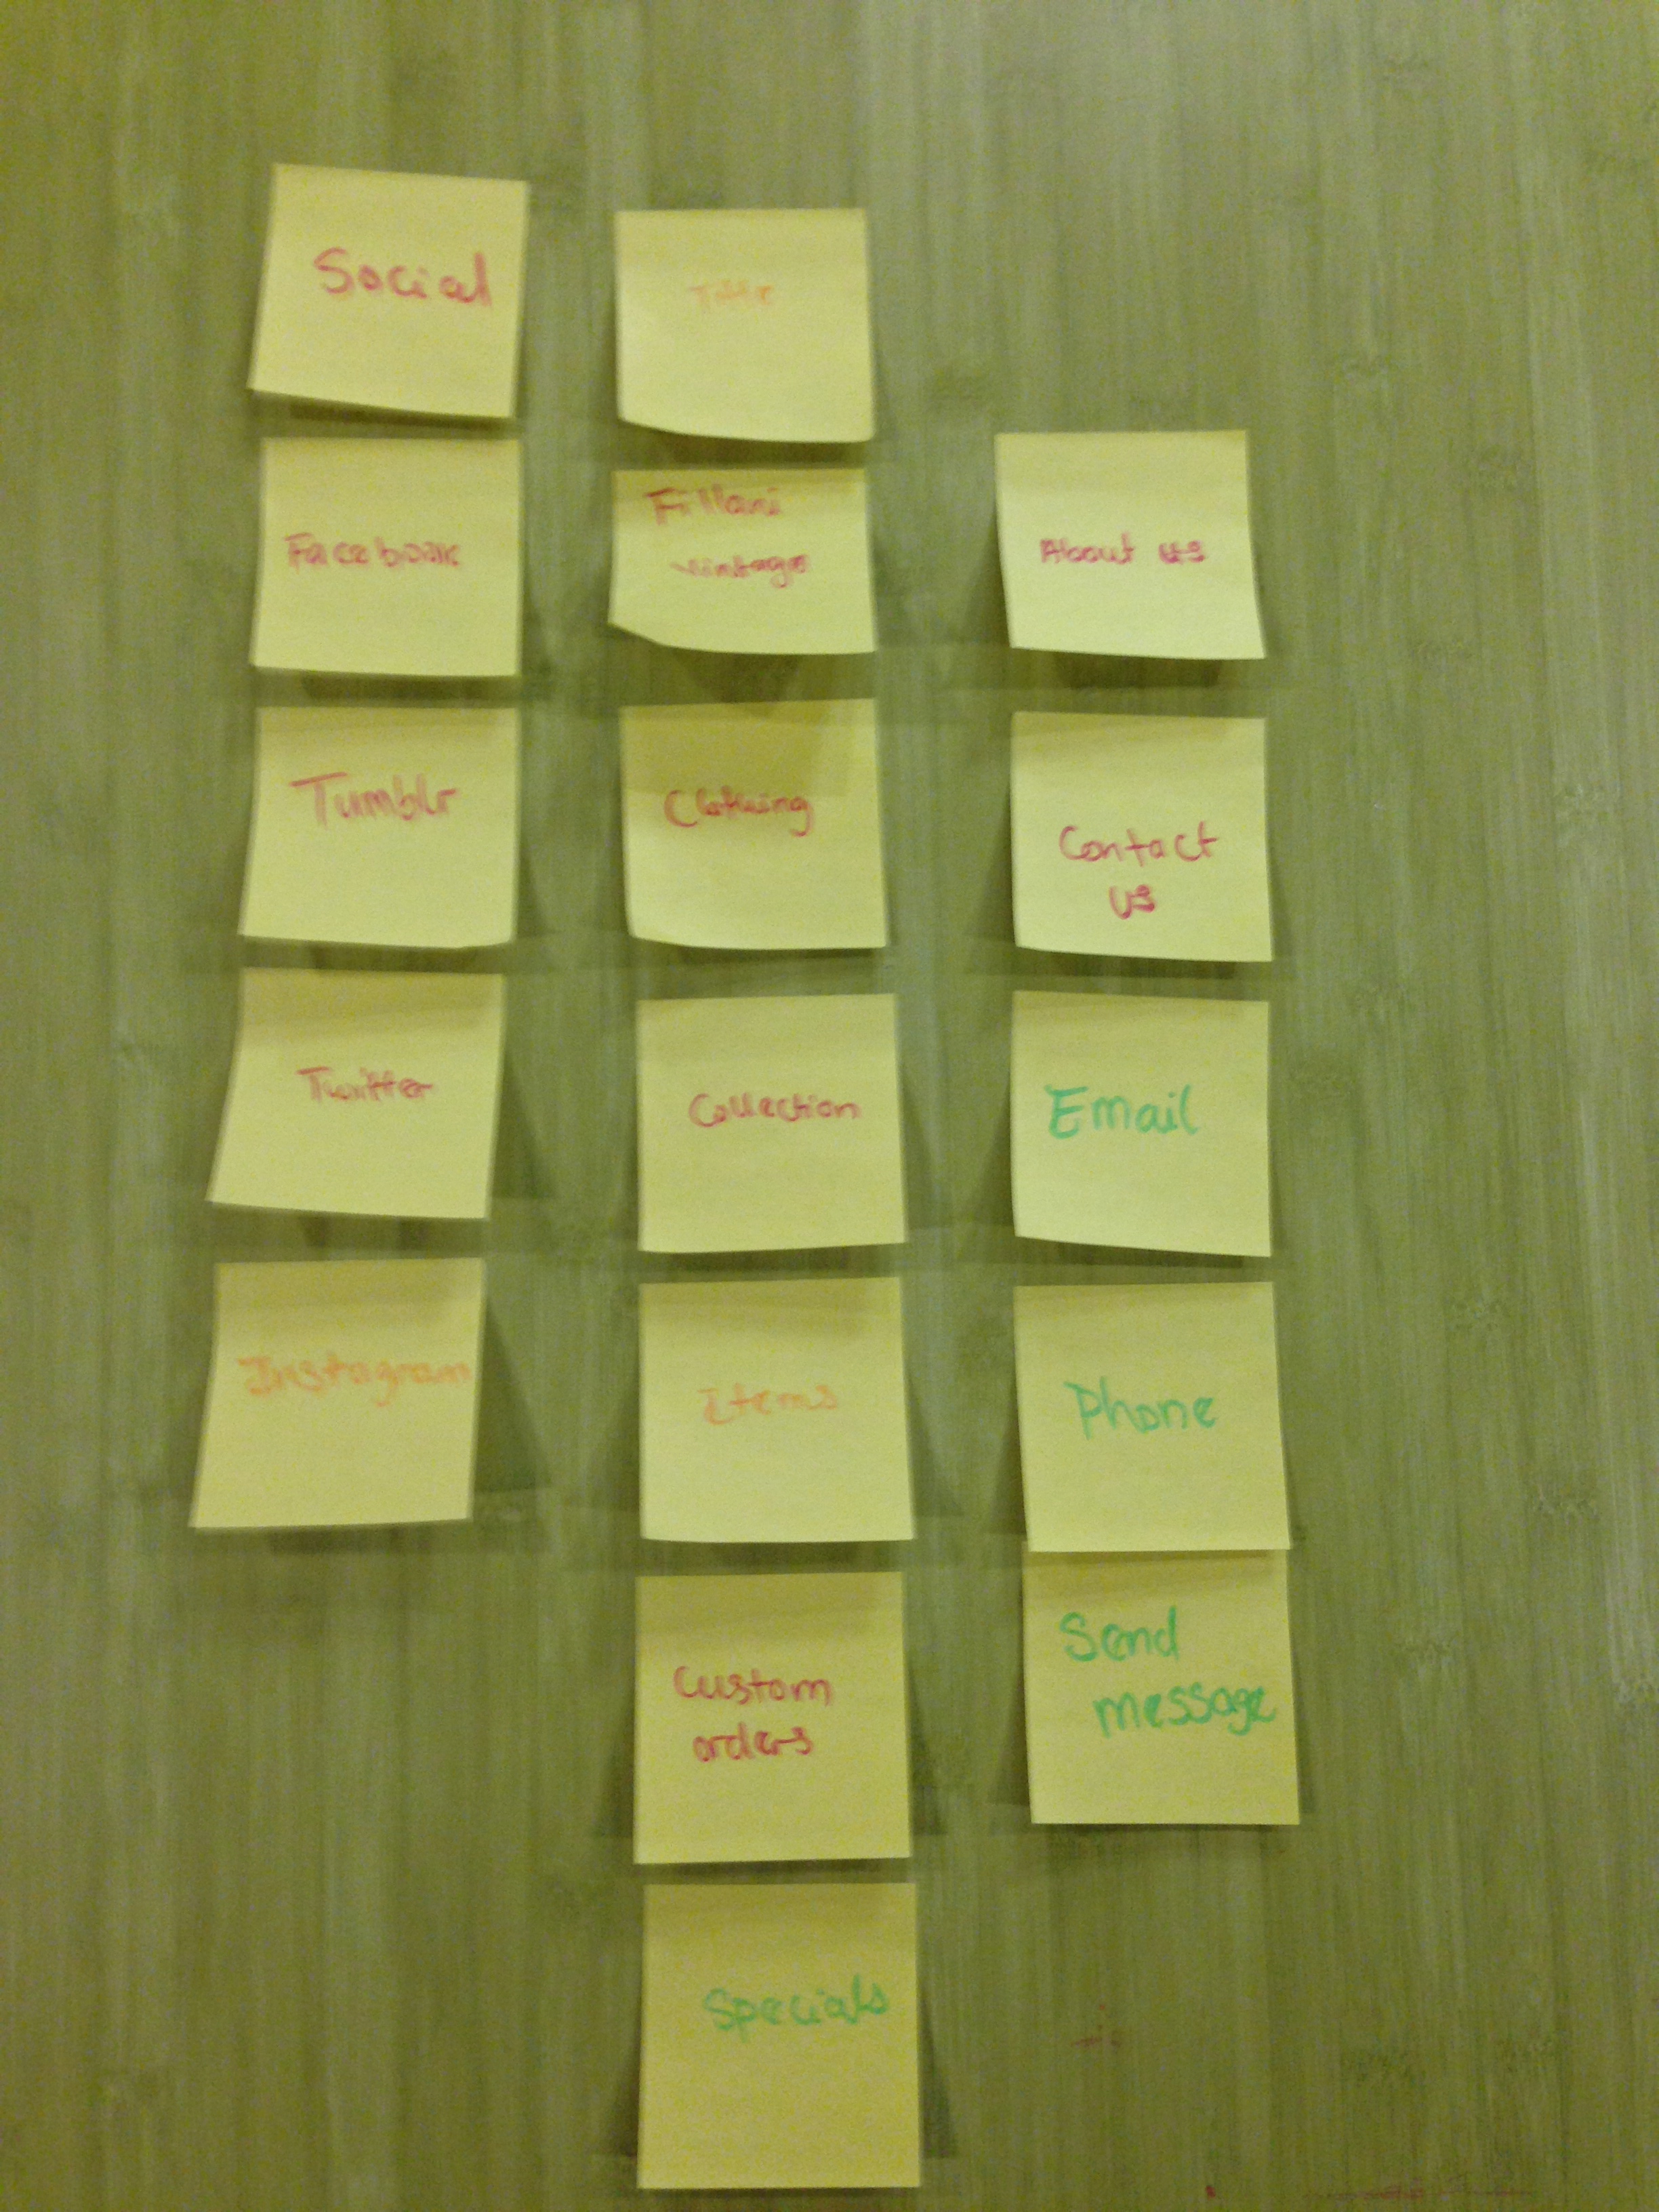 Social
Facebook
Tumblr
Twitter
Instagram
Title
Fillani
vintage
Clothing
Collection
Items
Custom
orders
Specials
About us
Contact
us
Email
Phone
Send
message